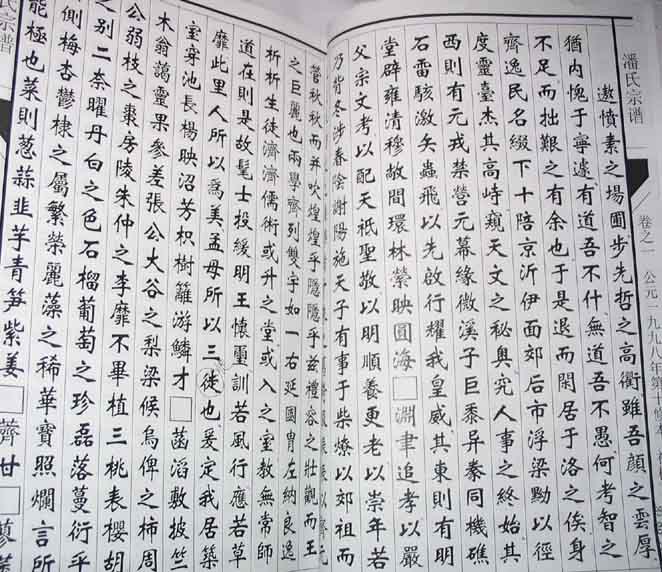 潘氏宗谱
卷之一 公元一九九八年第十修本
遨憤素之場圃步先哲之高衢雖吾顏之雲厚
猶内愧于寧遽有道吾不什無道吾不愚何考智之
不足而拙艱之有余也于是退而閑居于洛之俟身
齊逸民名綴下十陪京沂伊面郊后市浮梁黝以徑
度靈臺杰其高峙窺天文之秘奧究人事之終始其
西則有元戎禁營元幕緣微溪子巨黍异絭同機礁
石雷駭激矢蟲飛以先啟行耀我皇威其東則有明
堂辟雍清穆敞閑環林縈映圓海□淵聿追孝以嚴
父宗文考以配天祇聖敬以明順養更老以崇年若
乃背冬涉春陰謝陽施天子有事于柴燎以郊祖而
管秋秋而并吹煌煌乎隱隱乎兹禮容之壯觀而王
之巨麗也兩學齊列雙宇如一右延國胄左納良逸
祈祈生徒濟濟儒術或升之堂或入之室教無常師
道在則是故髦士投緩明王懷璽訓若風行應若草
靡此里人所以為美孟母所以三徙也爰定我居築
室穿池長楊映沼芳枳樹籬游鱗才□菡滔敷披竺
木翁藹靈果參差張公大谷之梨梁候烏俾之柿周
公弱枝之棗房陵朱仲之李靡不畢植三桃表櫻胡
之别二奈曜丹白之色石榴葡萄之珍磊落蔓衍乎
側梅杏鬱棣之屬繁榮麗藻之稀華寶照爛言所
能極也菜則葱蒜韭芋青笋紫姜□薺甘□蓼
氏宗谱